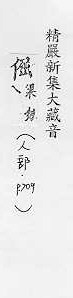 精嚴新集大藏音
渠勿(人部·p.709)